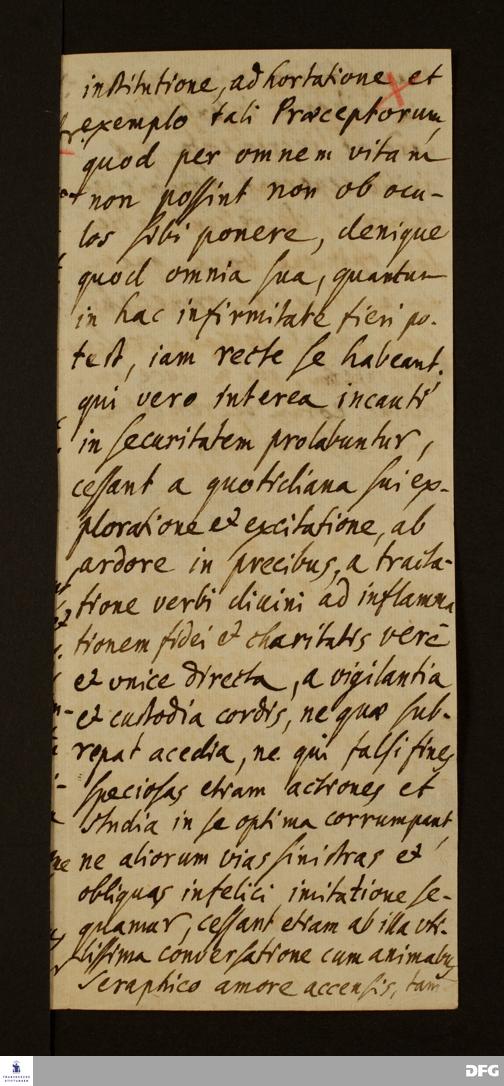 institutione, adhortatione et
exemplo tali Præceptorum,
quod per omnem vitam
non possint non ob ocu-
los sibi ponere, denique
quod omnia sua, quantum
in hac infirmitate fieri po-
test, iam recte se habeant.
qui vero interea incauti
in securitatem prolabuntur,
cessant a quotidiana sui ex-
ploratione et excitatione, ab
ardore in precibus, a tracta-
tione verbi divini ad inflamma
tionem fidei et charitatis verè
et vnice directa, a vigilantia
et custodia cordis, ne quæ sub-
repat acedia, ne qui falsi fines
speciosas etiam actiones et
studia in se optima corrumpant,
ne aliorum vias sinistras et
obliquas infelici imitatione se-
quamur, cessant etiam ab illa vti-
lissima conversatione cum animabus
Seraphico amore accensis, tam
FRANCKESCHE
STIFTUNGEN
DFG